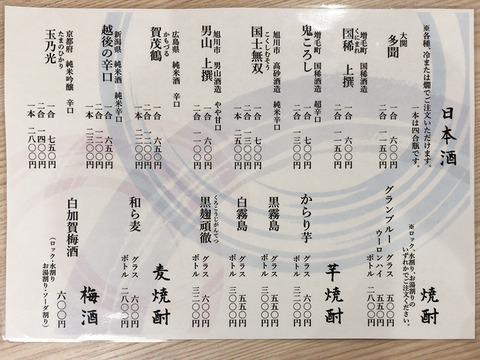 日本酒
※各種、冷または燗でご注文いただけます。
一本は四合瓶です。
大関
多聞
一合 六〇〇円
二合 一一五〇円
増毛町 国稀酒造
くにまれ
国稀 上撰
一合 六〇〇円
二合 一一五〇円
増毛町 国稀酒造 超辛口
鬼ごろし
一合 七〇〇円
旭川市 高砂酒造 純米辛口
こくしむそう
国士無双
一合 七〇〇円
旭川市 男山酒造 やや甘口
男山 上撰
一合 六〇〇円
広島県 純米酒 辛口
かもづる
賀茂鶴
一合 六五〇円
新潟県 純米酒 純米辛口
越後の辛口
一合 六五〇円
京都府 純米吟醸 辛口
たまのひかり
玉乃光
一合 七五〇円
一本 二八〇〇円
焼酎
※ロック、水割り、お湯割りの
いずれかでご注文ください。
グランブルー グラス 五〇〇円
ウーロンハイ 五五〇円
ボトル 二一〇〇円
芋焼酎
からり芋
グラス 六〇〇円
黒霧島
グラス 五五〇円
白霧島
グラス 五五〇円
くろこうじがんてつ
黒麹頑徹
グラス 六〇〇円
麦焼酎
和ら麦
グラス 六〇〇円
ボトル 二八〇〇円
梅酒
白加賀梅酒
六〇〇円
（ロック・水割り
お湯割り・ソーダ割り）